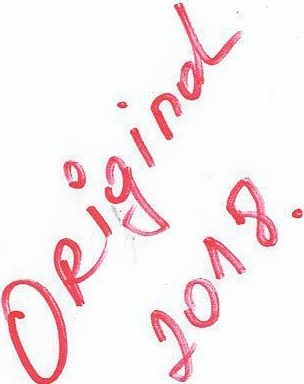 ORiginal
2018.